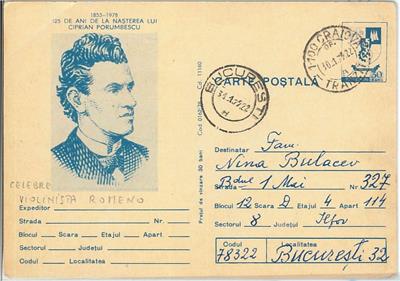 1853-1978
125 DE ANI DE LA NAȘTEREA LUI
CIPRIAN PORUMBESCU
CELEBRE
VIOLINISTA ROMENO
Expeditor
Strada Nr.
Blocul Scara Etajul Apart.
Sectorul Județul
Codul Localitatea
Cod
Prețul de vînzare 30 bani
BUCUREȘTI
CRAIOVA
CARTE POȘTALĂ
Destinatar Fam.
Nina Bulacev
Bdul 1 Mai Nr. 327
Blocul 12 Scara D Etajul 4 Apart. 114
Sectorul 8 Județul Ilfov
Codul Localitatea
78322 București 32